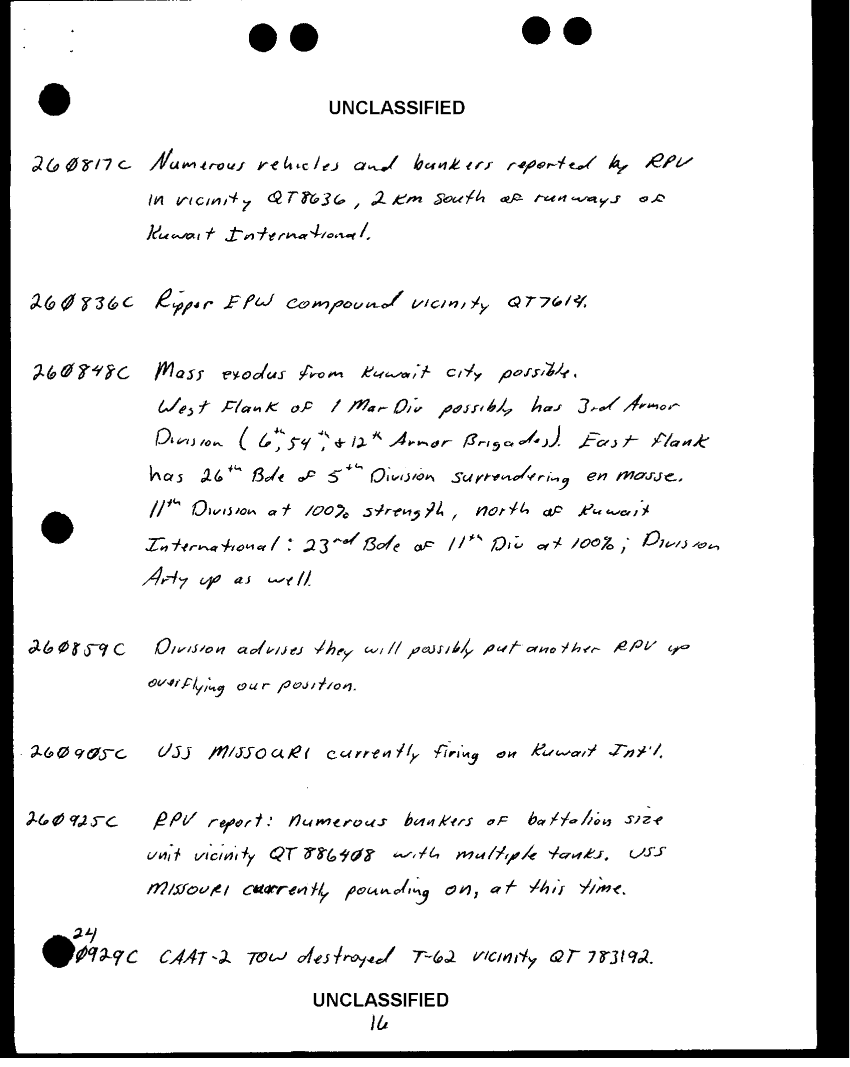 UNCLASSIFIED
260817C Numerous vehicles and bunkers reported by RPV
in vicinity QT8636, 2 km south of runways of
Kuwait International.
260836C Ripper EPW compound vicinity QT7614.
260848C Mass exodus from Kuwait city possible.
West Flank of 1 Mar Div possibly has 3rd Armor
Division (6th, 54th, + 12th Armor Brigades). East flank
has 26th Bde of 5th Division surrendering en masse.
11th Division at 100% strength, north of Kuwait
International: 23rd Bde of 11th Div at 100%; Division
Arty up as well.
260859C Division advises they will possibly put another RPV up
overflying our position.
260905C USS MISSOURI currently firing on Kuwait Int'l.
260925C RPV report: Numerous bunkers of battalion size
unit vicinity QT 886408 with multiple tanks. USS
MISSOURI currently pounding on, at this time.
24
0929C CAAT-2 TOW destroyed T-62 vicinity QT 783192.
UNCLASSIFIED
16